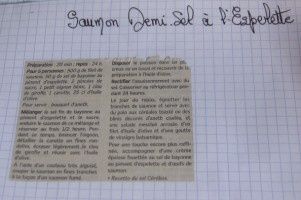 Saumon Demi Sel à l'Espelette
Préparation : 20 min ; repos : 24 h
Pour 6 personnes : 600 g de filet de
saumon, 50 g de sel de bayonne au
piment d'espelette, 2 poivres de
1 petit oignon blanc, 1 clou
de girofle, 1 carotte, 25 cl d'huile
d'olive
Pour servir : bouquet d'aneth.
Mélanger le sel fin de bayonne au
piment d'espelette et le sucre,
enduire le saumon de ce mélange et
réserver au frais 1/2 heure.
dant ce temps, émincer l'oignon,
détailler la carotte en fines ron-
delles, écraser légèrement le clou
de girofle et réunir avec l'huile
d'olive.
A l'aide d'un couteau très aiguisé,
couper le saumon en fines tranches
à la façon d'un saumon fumé.
Disposer le poisson dans un
la
préparation à l'huile d'olive.
Rectifier l'assaisonnement avec du
sel Conserver au réfrigérateur pen-
dant 24 heures.
Le jour du repas, égoutter les
tranches de saumon et servir avec
du pain aux céréales toasté et des
dés divers aneth ciselé, et
une salade mesclun arrosée d'un
filet d'huile d'olive et d'une goutte
de vinaigre balsamique.
Pour une touche encore plus raffi-
née, accompagner d'une crème
épaisse fouettée au sel de bayonne
au piment d'espelette et d'œufs de
saumon.